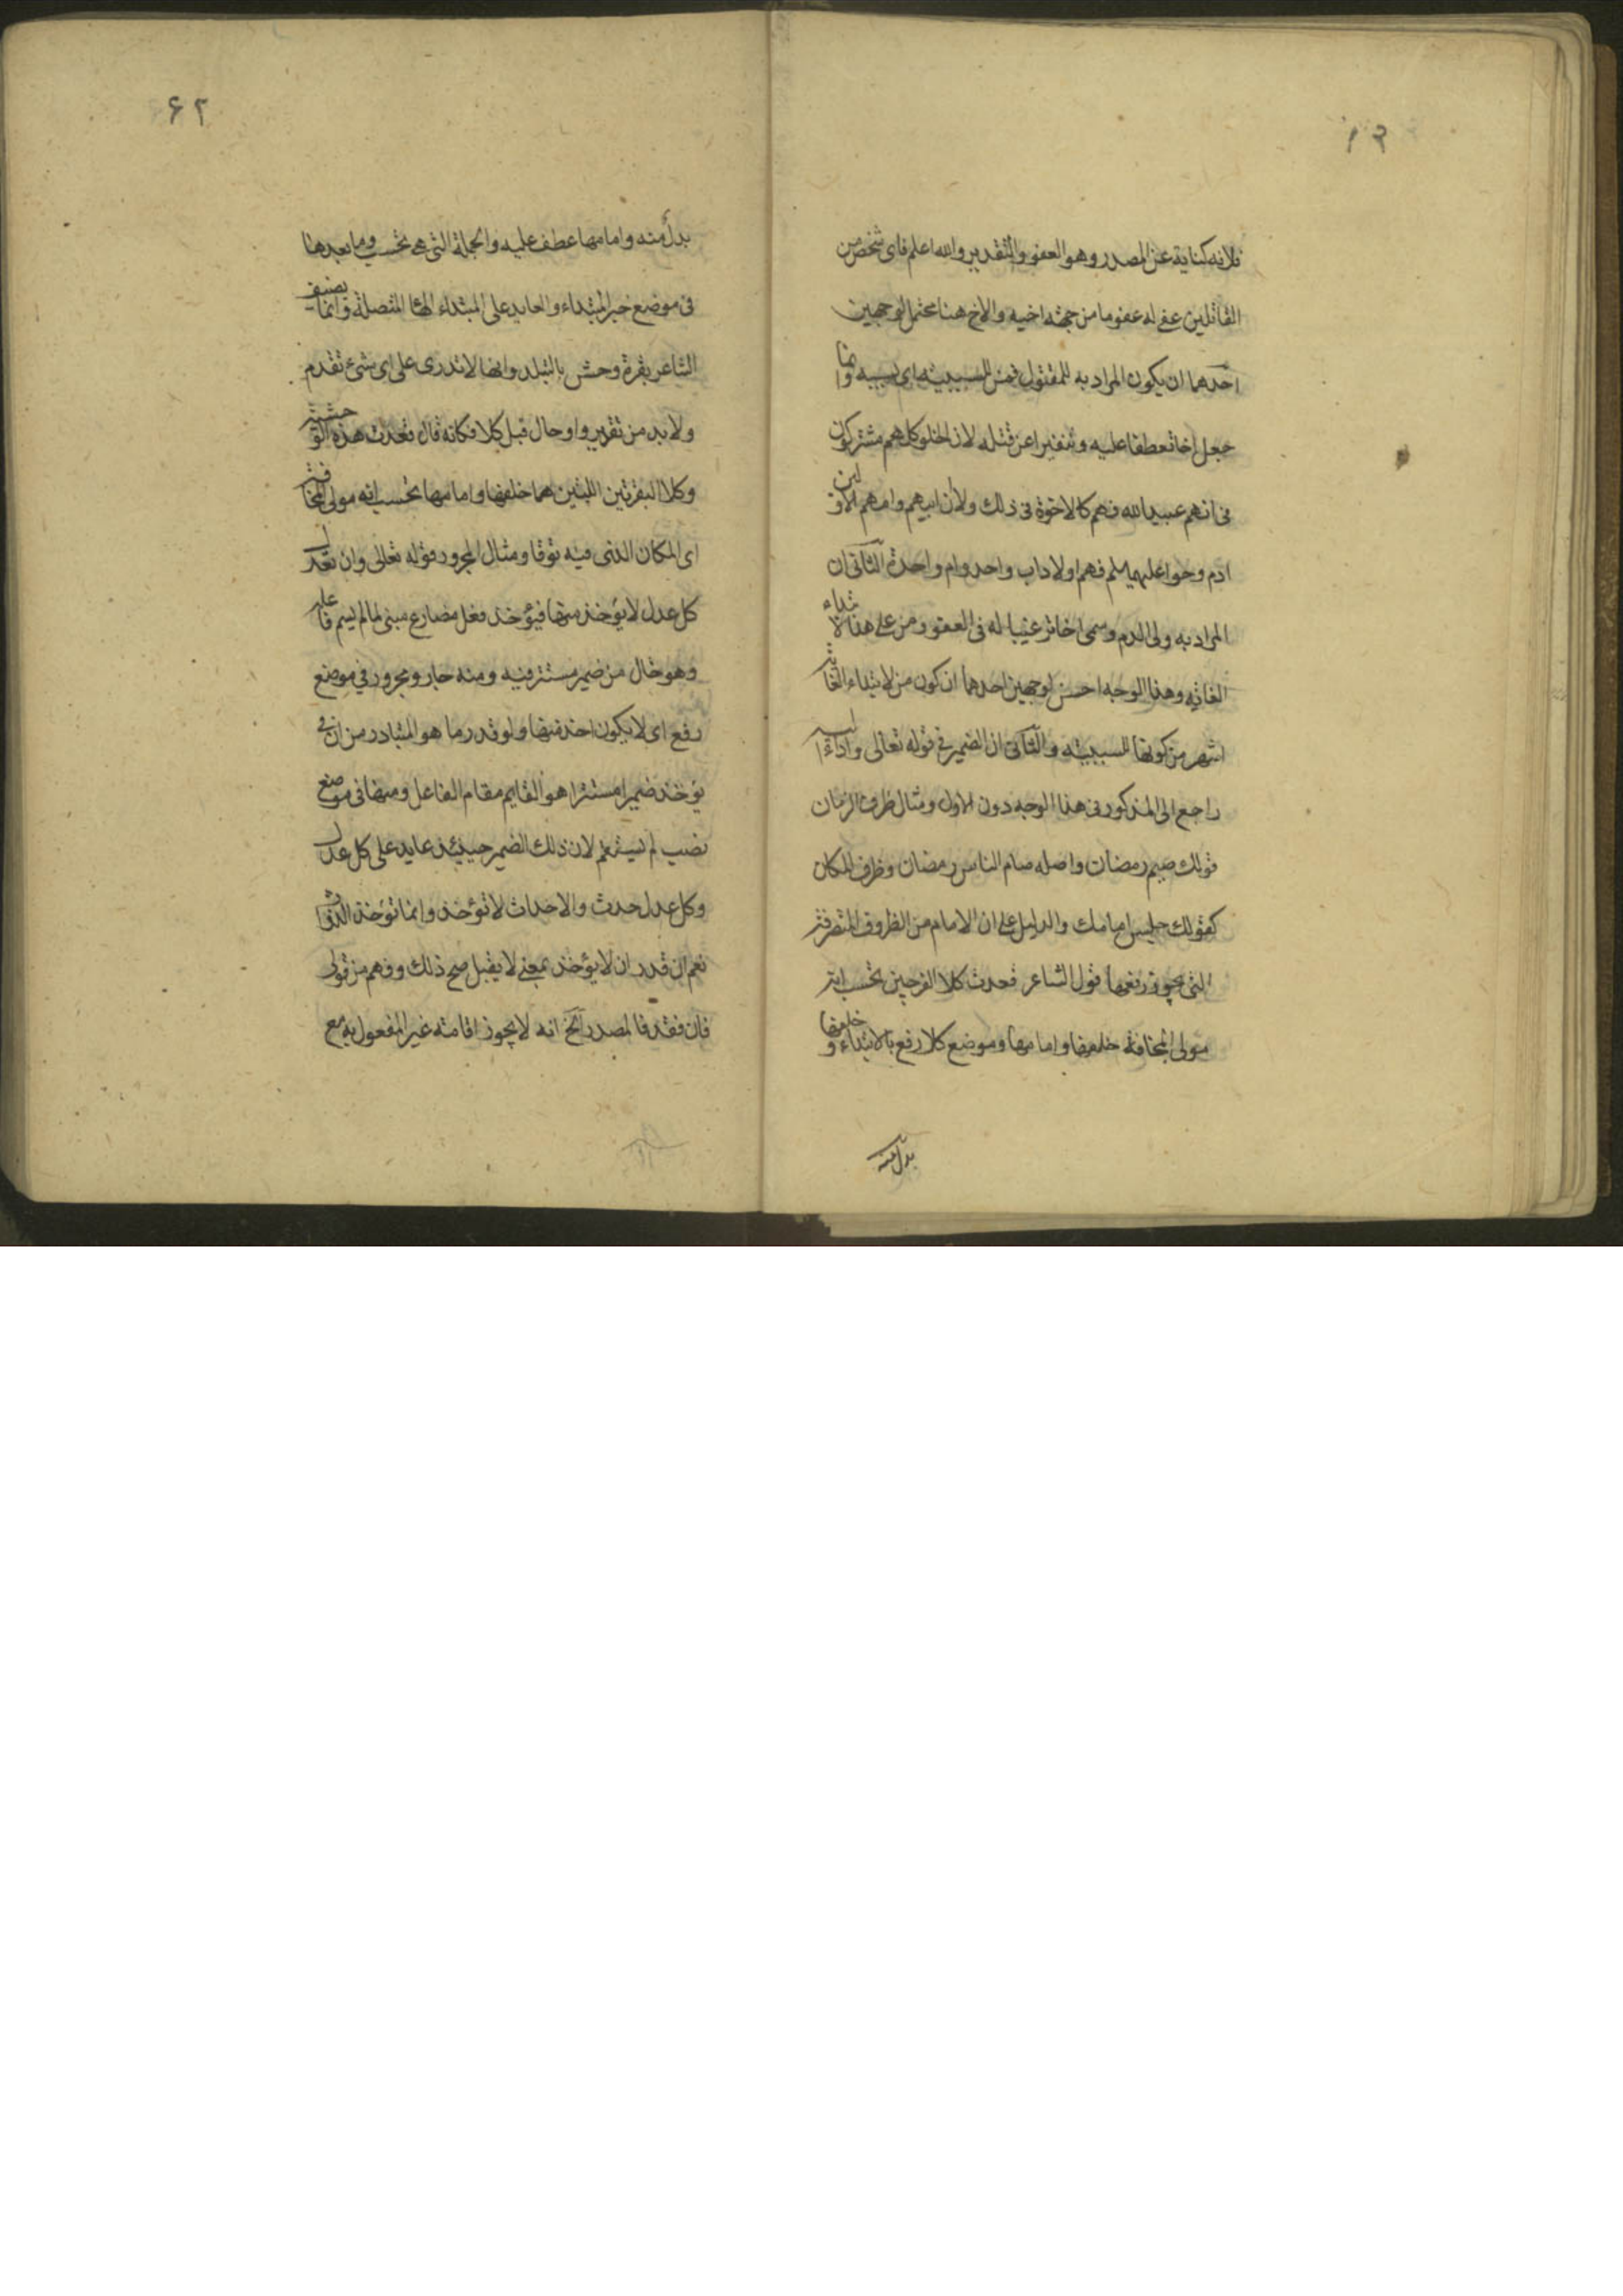 فلانه كناية عن المصدر وهو العفو والتقدير والله اعلم فاى شخص من
القاتلين عفى له عفو ما من جهة اخيه والاخ هنا محتمل لوجهين
احدهما ان يكون المراد به المقتول فمن للسببية اى بسببه وانما
جعل اخا تعطفا عليه وتنفيرا عن قتله لان الخلق كلهم مشتركون
فى انهم عبيد الله فهم كالاخوة فى ذلك ولان ابيهم وامهم الاولين
ادم وحوا عليهما سلم فهم اولاد اب واحد وام واحدة الثانى ان
المراد به ولى الدم وسمى اخا ترغيبا له فى العفو ومن على هذا لابتداء
الغاية وهذا الوجه احسن لوجهين احدهما ان كون من لابتداء الغاية
اشهر من كونها للسببية والثانى ان الضمير فى قوله تعالى واداء اليه
راجع الى المذكور فى هذا الوجه دون الاول ومثال ظرف الزمان
قولك صيم رمضان واصله صام الناس رمضان وظرف المكان
كقولك جلس امامك والدليل على ان الامام من الظروف المتصرفة
التى يجوز رفعها قول الشاعر فغدت كلا الفرجين تحسب انه
مولى المخافة خلفها وامامها وموضع كلا رفع بالابتداء وخلفها
بدل منه
٦٢
بدل منه وامامها عطف عليه والجملة التى هى تحسب وما بعدها
فى موضع خبر المبتداء والعايد على المبتداء الها المتصلة وانما يصف
الشاعر بقرة وحش بالتبلد وانها لا تدرى على اى شئ تقدم
ولا بد من تقدير واو حال قبل كلا فكانه قال فغدت هذه الوحشية
وكلا البقرتين اللتين هما خلفها وامامها تحسب انه مولى المخافة
اى المكان الذى فيه توقا ومثال المجرور قوله تعالى وان تعدل
كل عدل لا يؤخذ منها فيؤخذ فعل مضارع مبنى لما لم يسم فاعله
وهو خال من ضمير مستتر فيه ومنه جار ومجرور فى موضع
رفع اى لا يكون اخذ منها ولو قدر ما هو المتبادر من ان فى
يؤخذ ضميرا مستترا هو القايم مقام الفاعل ومنها فى موضع
نصب لم يستقم لان ذلك الضمير حينئذ عايد على كل عدل
وكل عدل حدث والاحداث لا تؤخذ وانما تؤخذ الذوات
نعم ان قدر ان لا يؤخذ بمعنى لا يقبل صح ذلك وفهم من قولى
فان فقد فالمصدر الخ انه لا يجوز اقامته غير المفعول به مع